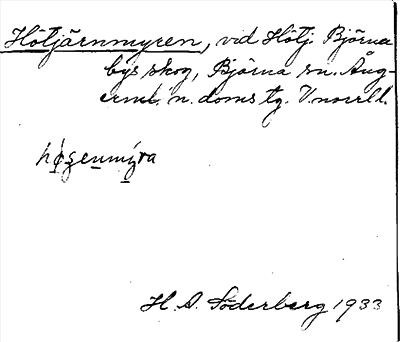 Hötjärnmyren, vid Hötj. Björna
bys skog, Björna sn. Ång-
erml. n. doms tg. V.norrl.
H. A. Söderberg 1933